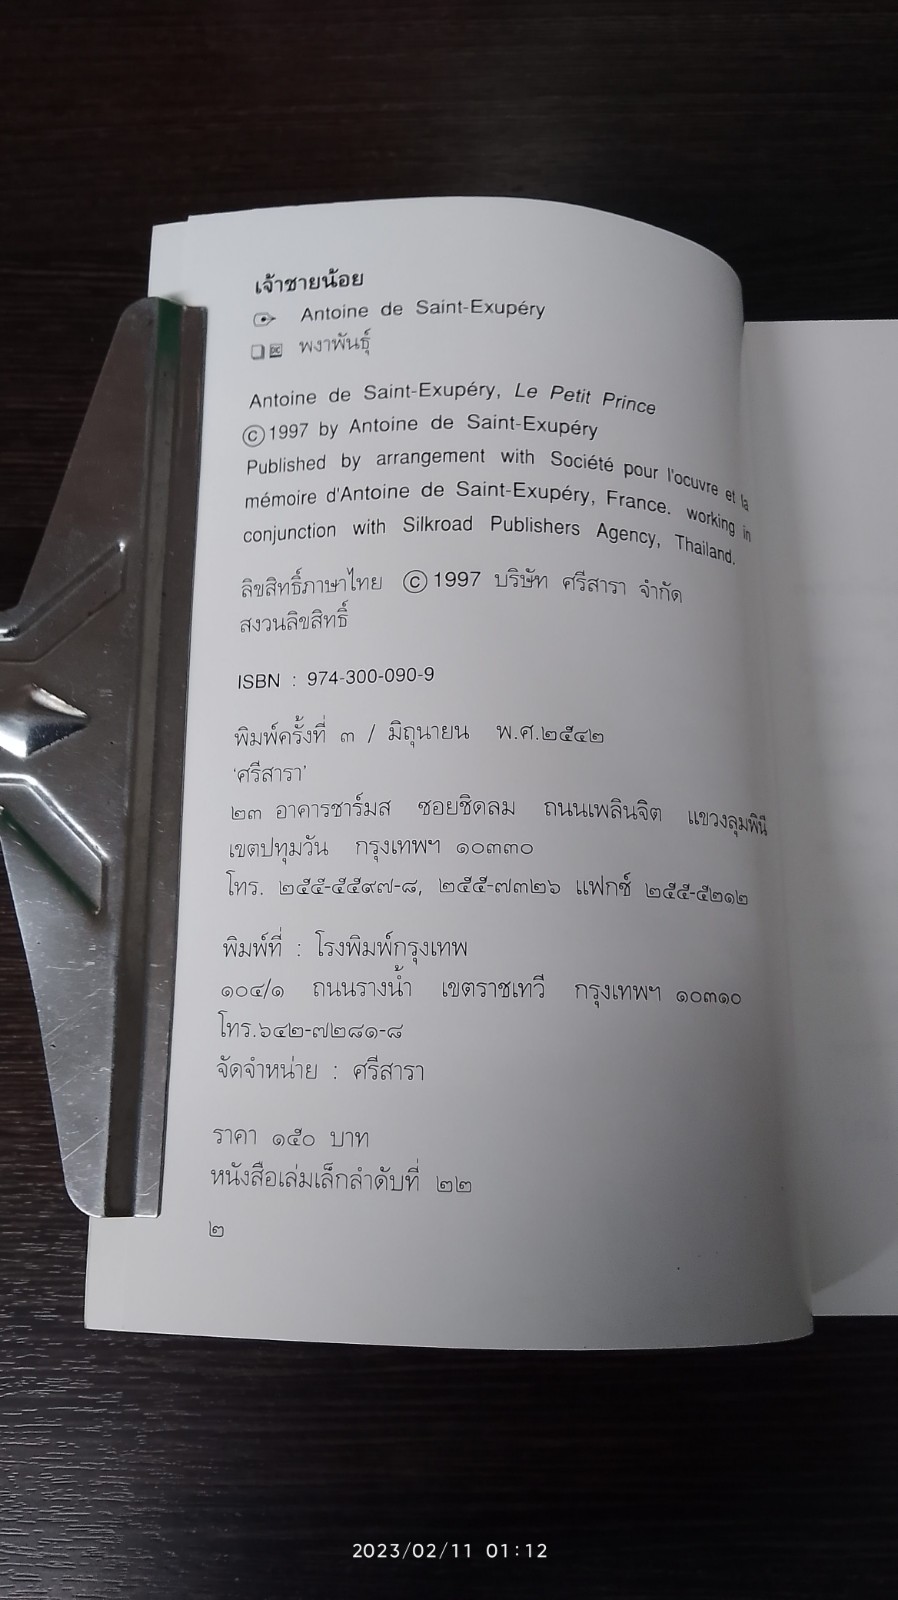 เจ้าชายน้อย
Antoine de Saint-Exupéry
พงาพันธุ์
Antoine de Saint-Exupéry, Le Petit Prince
©1997 by Antoine de Saint-Exupéry
Published by arrangement with Société pour l'ocuvre et la
mémoire d'Antoine de Saint-Exupéry, France. working in
conjunction with Silkroad Publishers Agency, Thailand.
ลิขสิทธิ์ภาษาไทย ©1997 บริษัท ศรีสารา จำกัด
สงวนลิขสิทธิ์
ISBN : 974-300-090-9
พิมพ์ครั้งที่ ๓ / มิถุนายน พ.ศ.๒๕๔๒
'ศรีสารา'
๒๓ อาคารชาร์มส ซอยชิดลม ถนนเพลินจิต แขวงลุมพินี
เขตปทุมวัน กรุงเทพฯ ๑๐๓๓๐
โทร. ๒๕๕-๕๕๙๗-๘, ๒๕๕-๗๓๒๖ แฟกซ์ ๒๕๕-๕๒๑๒
พิมพ์ที่ : โรงพิมพ์กรุงเทพ
๑๐๔/๑ ถนนรางน้ำ เขตราชเทวี กรุงเทพฯ ๑๐๓๑๐
โทร.๖๔๒-๗๒๘๑-๘
จัดจำหน่าย : ศรีสารา
ราคา ๑๕๐ บาท
หนังสือเล่มเล็กลำดับที่ ๒๒
๒
2023/02/11 01:12